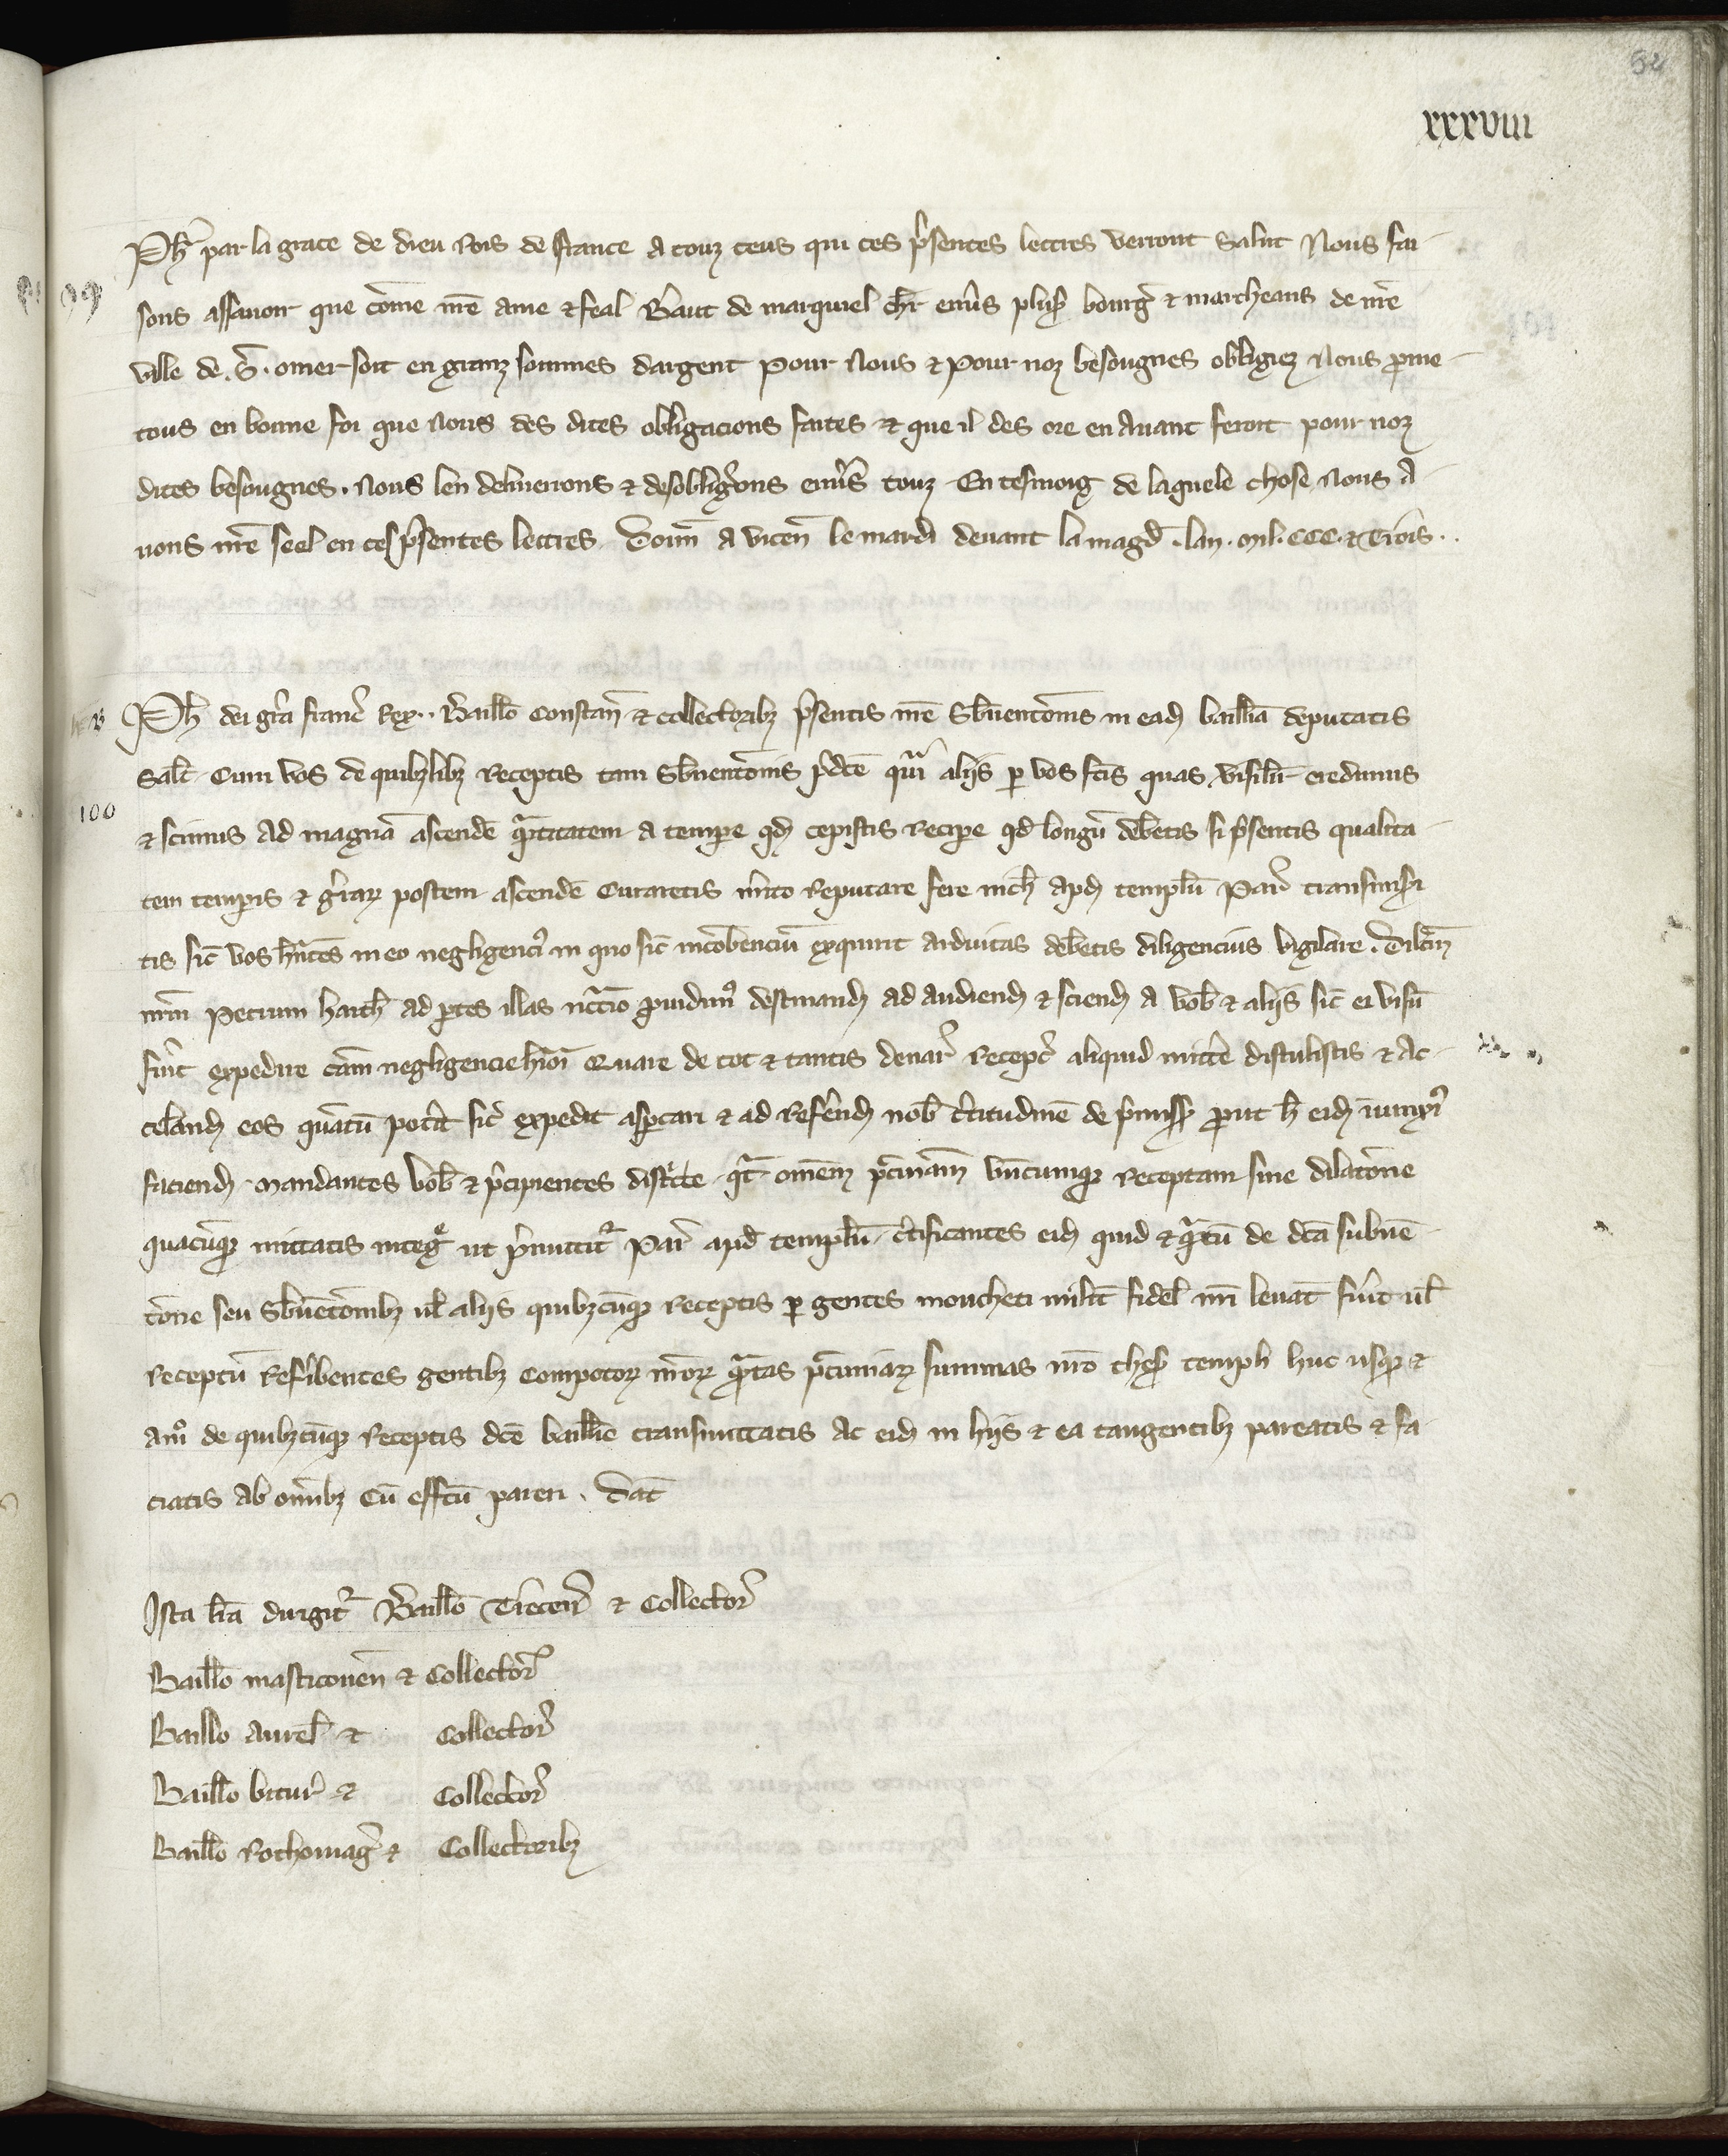 52
xxxviii
Ph̃ par la grace de dieu Rois de france a touz ceus qui ces p̃sentes lettres verront Salut Nous fai-
99
sons assavoir que cõme nr̃e ame & feal B̃aut de marquiel ch̃r enũs plus̃ bourg̃ & marcheans de nr̃e
ville de . S̃ . omer soit en granz sommes dargent pour Nous & pour noz besougnes obligiez Nous p̃me-
tons en bonne foi que Nous des dites obligacions faites & que il des ore en avant feroit pour noz
dites besougnes . Nous len deliuerrons & desobligẽons enũs touz En tesmoig de laquele chose Nous A
uons nr̃e seel en ces p̃sentes lettres . Doñ a vicen̄ le mardi devant la magd̃ . lan . mil . CCC . & Trois .
Ph̃ dei gr̃a franc̃ Rex .. Baill̃o Constañ & collectoribz p̃sentis nr̃e Sb̃uentõnis in ead̃ baill̃ia deputatis
Salt̃ Cum vos de quibzlibz receptis tam Sb̃uentõnis p̃dc̃e qũa alijs p vos fc̃is quas v̾isil̃r credimus
100
& scimus ad magnã ascendẽ qãtitatem a tempe qd̃ cepistis recipe qd̃ longũ deb̃etis si p̃sentis qualita-
tem tempis & gr̃iarz postem ascendẽ Curaretis m̃ito reputare fere nich̃ apd̃ templũ Par̃ transmis̃i
tis sic̃ vos hñtes in eo negligenc̃ in quo sic̃ incõbenciũ exquirit arduitas deb̃etis diligencius vigilare . Dilc̃m
nr̃m Petrum hatch̃ ad ptes illas p̃uidim̾ destinand̃ ad audiend̃ & sciend̃ a vob̃ & alijs sic̃ ei visũ
fũit expedire cãm negligencie hm̃oi Quare de tot & tantis denar̃ recept̃ aliquid mittẽ distulistis & ac-
celand̃ eos quãtũ pot̃it sic̃ expedit & ad refẽnd̃ nob̃ c̃titudinẽ de p̃miss̃ p̃ut h̃ eid̃ iniunx̃i
faciend̃ . Mandantes vob̃ & p̃cipientes distc̃te . qt̃ om̃em pc̃uniam̃ vñcumqz receptam sine dilatõne
quacũqz mittatis integ̃ ut p̃mittit̃ Par̃ apd̃ templũ . c̃tificantes eid̃ quid & qãtũ de dc̃a subuẽ
tõne seu Sb̃uẽtonibz ul̃ alijs quibzcũqz receptis p gentes moucheti milit̃ fidel̃ nr̃i leuat̃ fũit ul̃
receptũ refc̃ibentes gentibz Compotorz nr̃orz qãtas pc̃uniarz summas nr̃o thes̃ templi huc usqz &
am̊o de quibzcũqz receptis dc̃e baill̃ie transmittatis ac eid̃ in hijs & ea tangentibz pareatis & fa-
ciatis ab om̃ibz cũ effc̃tũ pareri . Dat̃
Ista lr̃a dirigit̃ Baill̃o Trecen̄ & Collector̃
Baill̃o masticoneñ & Collector̃
Baillo Aurel̃ & Collector̃
Baill̃o bitur̃ & Collector̃
Baill̃o Rothomag̃ & Collectoribz